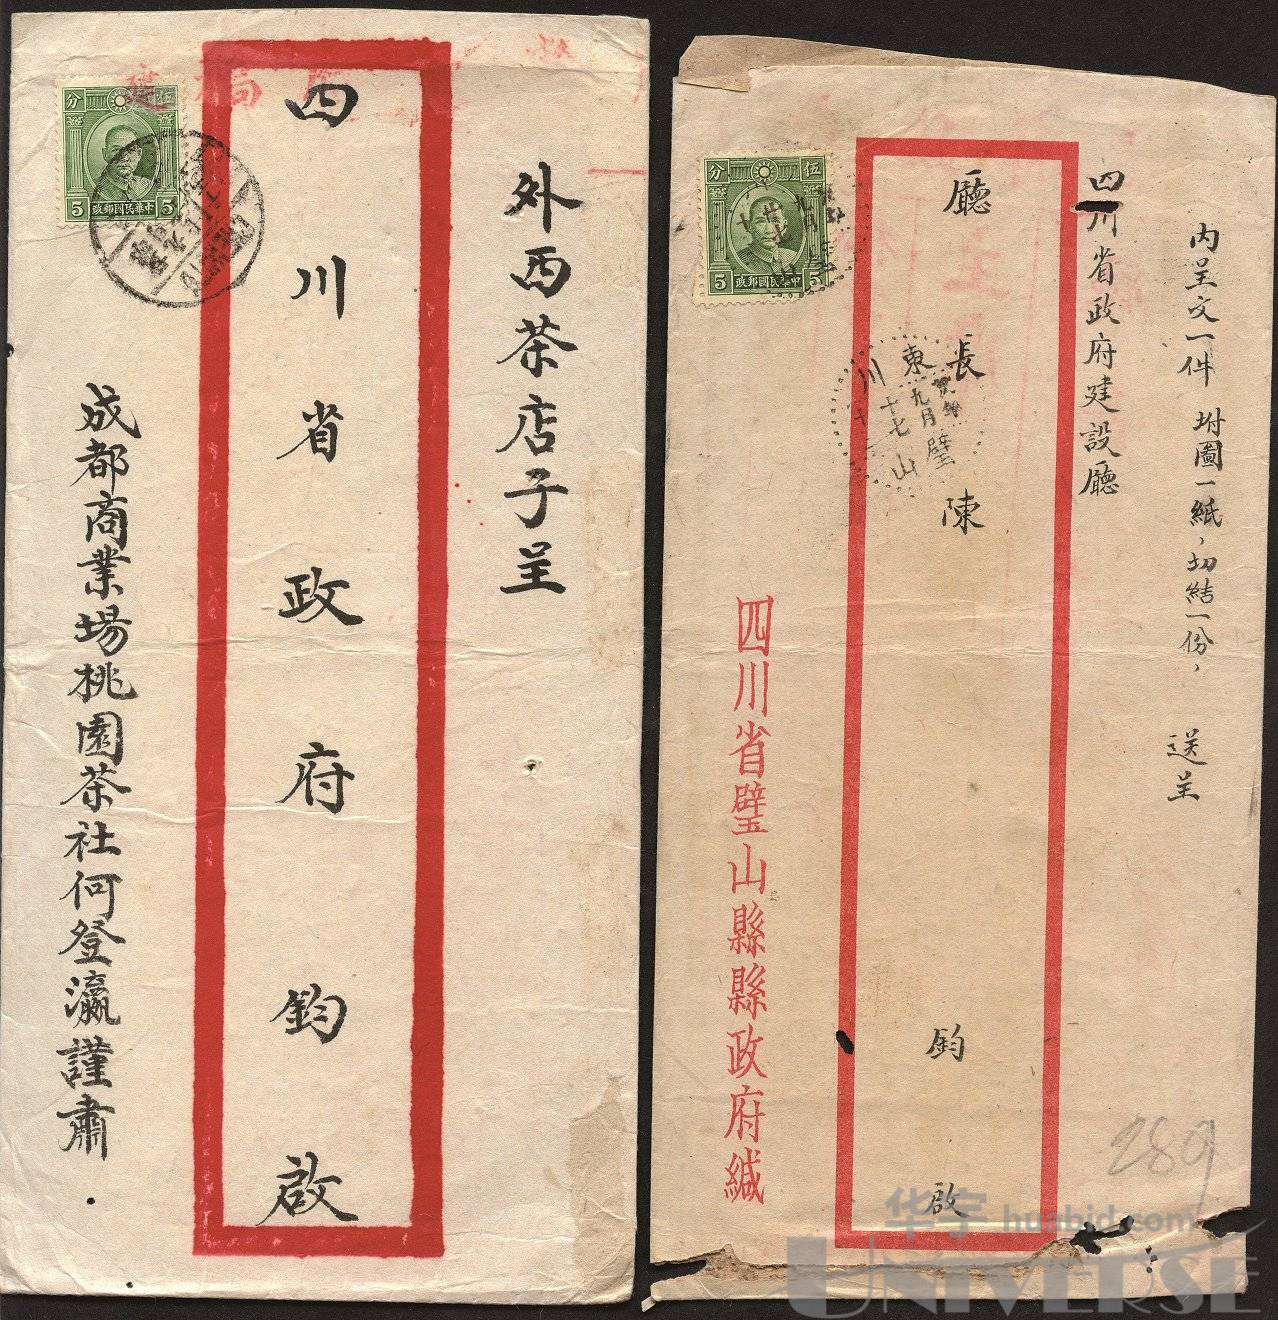 外西茶店子呈
四川省政府鈞啟
成都商業場桃園茶社何登瀛謹肅
分
5 中華民國郵政 5
內呈文一件 坿圖一紙，切結一份， 送呈
四川省政府建設廳
廳長陳 鈞啟
四川省璧山縣縣政府緘
分 伍
5 中華民國郵政 5
東川
九月
十七
璧山
289
华宇 huabid.com
UNIVERSE